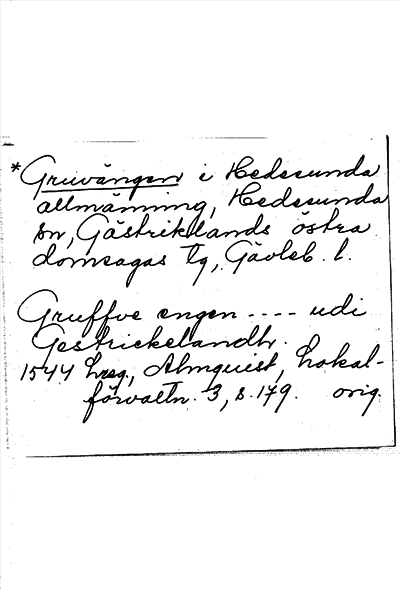 *Gruvängen i Hedesunda
allmänning, Hedesunda
sn, Gästriklands östra
domsagas tg, Gävleb. l.
Gruffve engen ---- udi
Gestrickelandh.
1544 hreg., Almquist, Lokal-
förvaltn. 3, s. 179. orig.